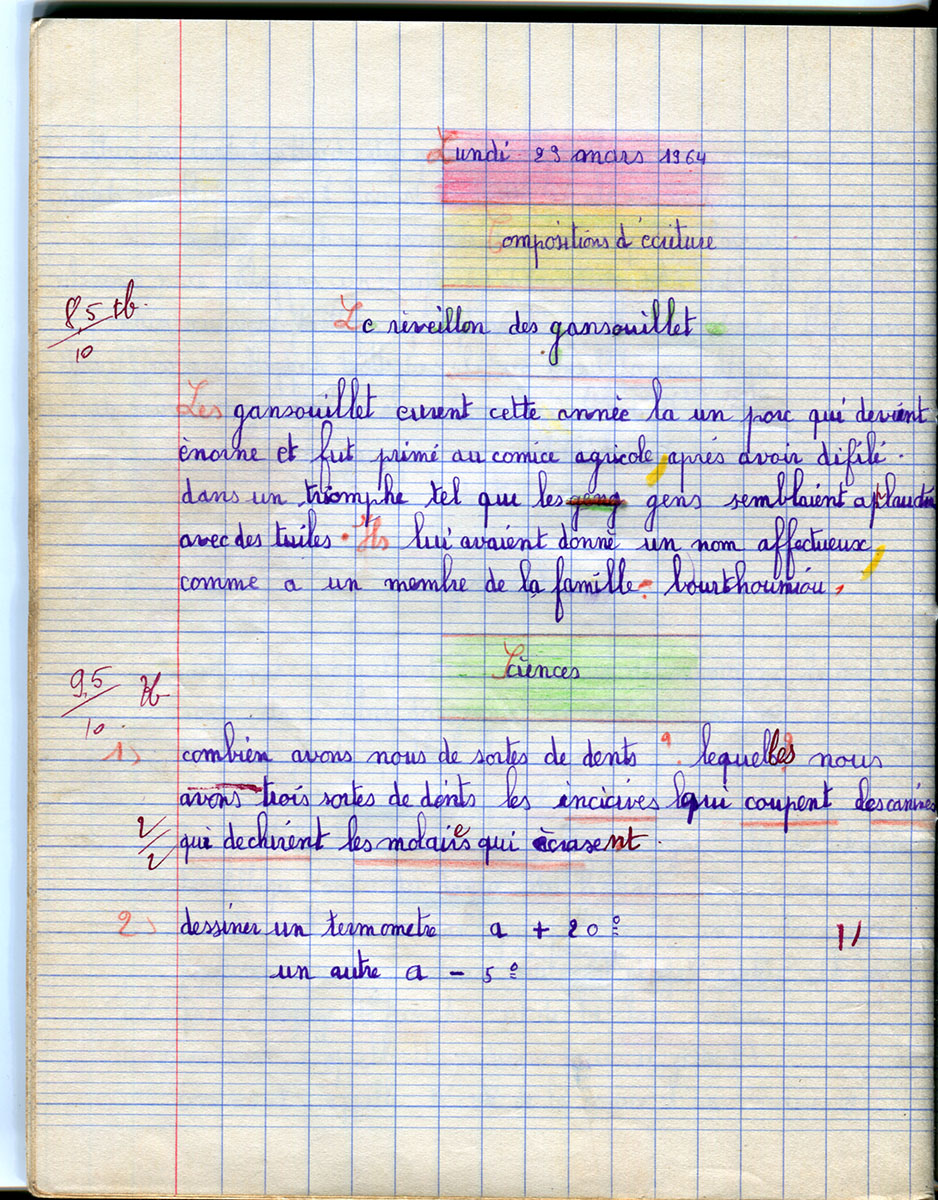 Lundi 23 mars 1964
Compositions d'écriture
8,5 tb.
10
Le rèveillon des gansouillet
Les gansouillet eurent cette annèe la un porc qui devient
ènorme et fut primé au comice agricole, aprés avoir difilé.
dans un triomphe tel que les gens semblaient aplaudir
avec des tuiles. Ils lui avaient donnè un nom affectueux,
comme a un membre de la famille : bourthoumiou,
Sciences
9,5 tb
10
1) combien avons nous de sortes de dents ? lequelles ? nous
avons trois sortes de dents les incicives qui coupent les canines
2/2 qui dechirent les molaires qui ècrasent.
2) dessiner un termometre a + 20° 1/
un autre a - 5°